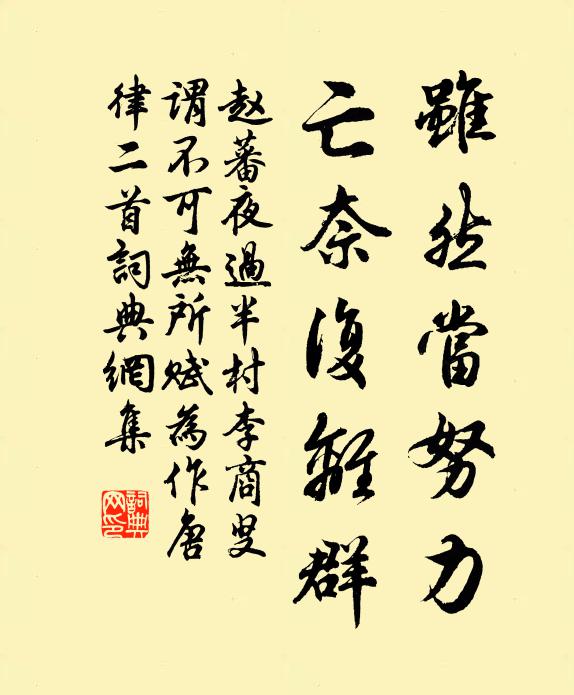 雖然當努力
亡奈復離群
赵蕃夜過半村李商叟
謂不可無所赋為作唐
律二首詞典網集
詞典网印